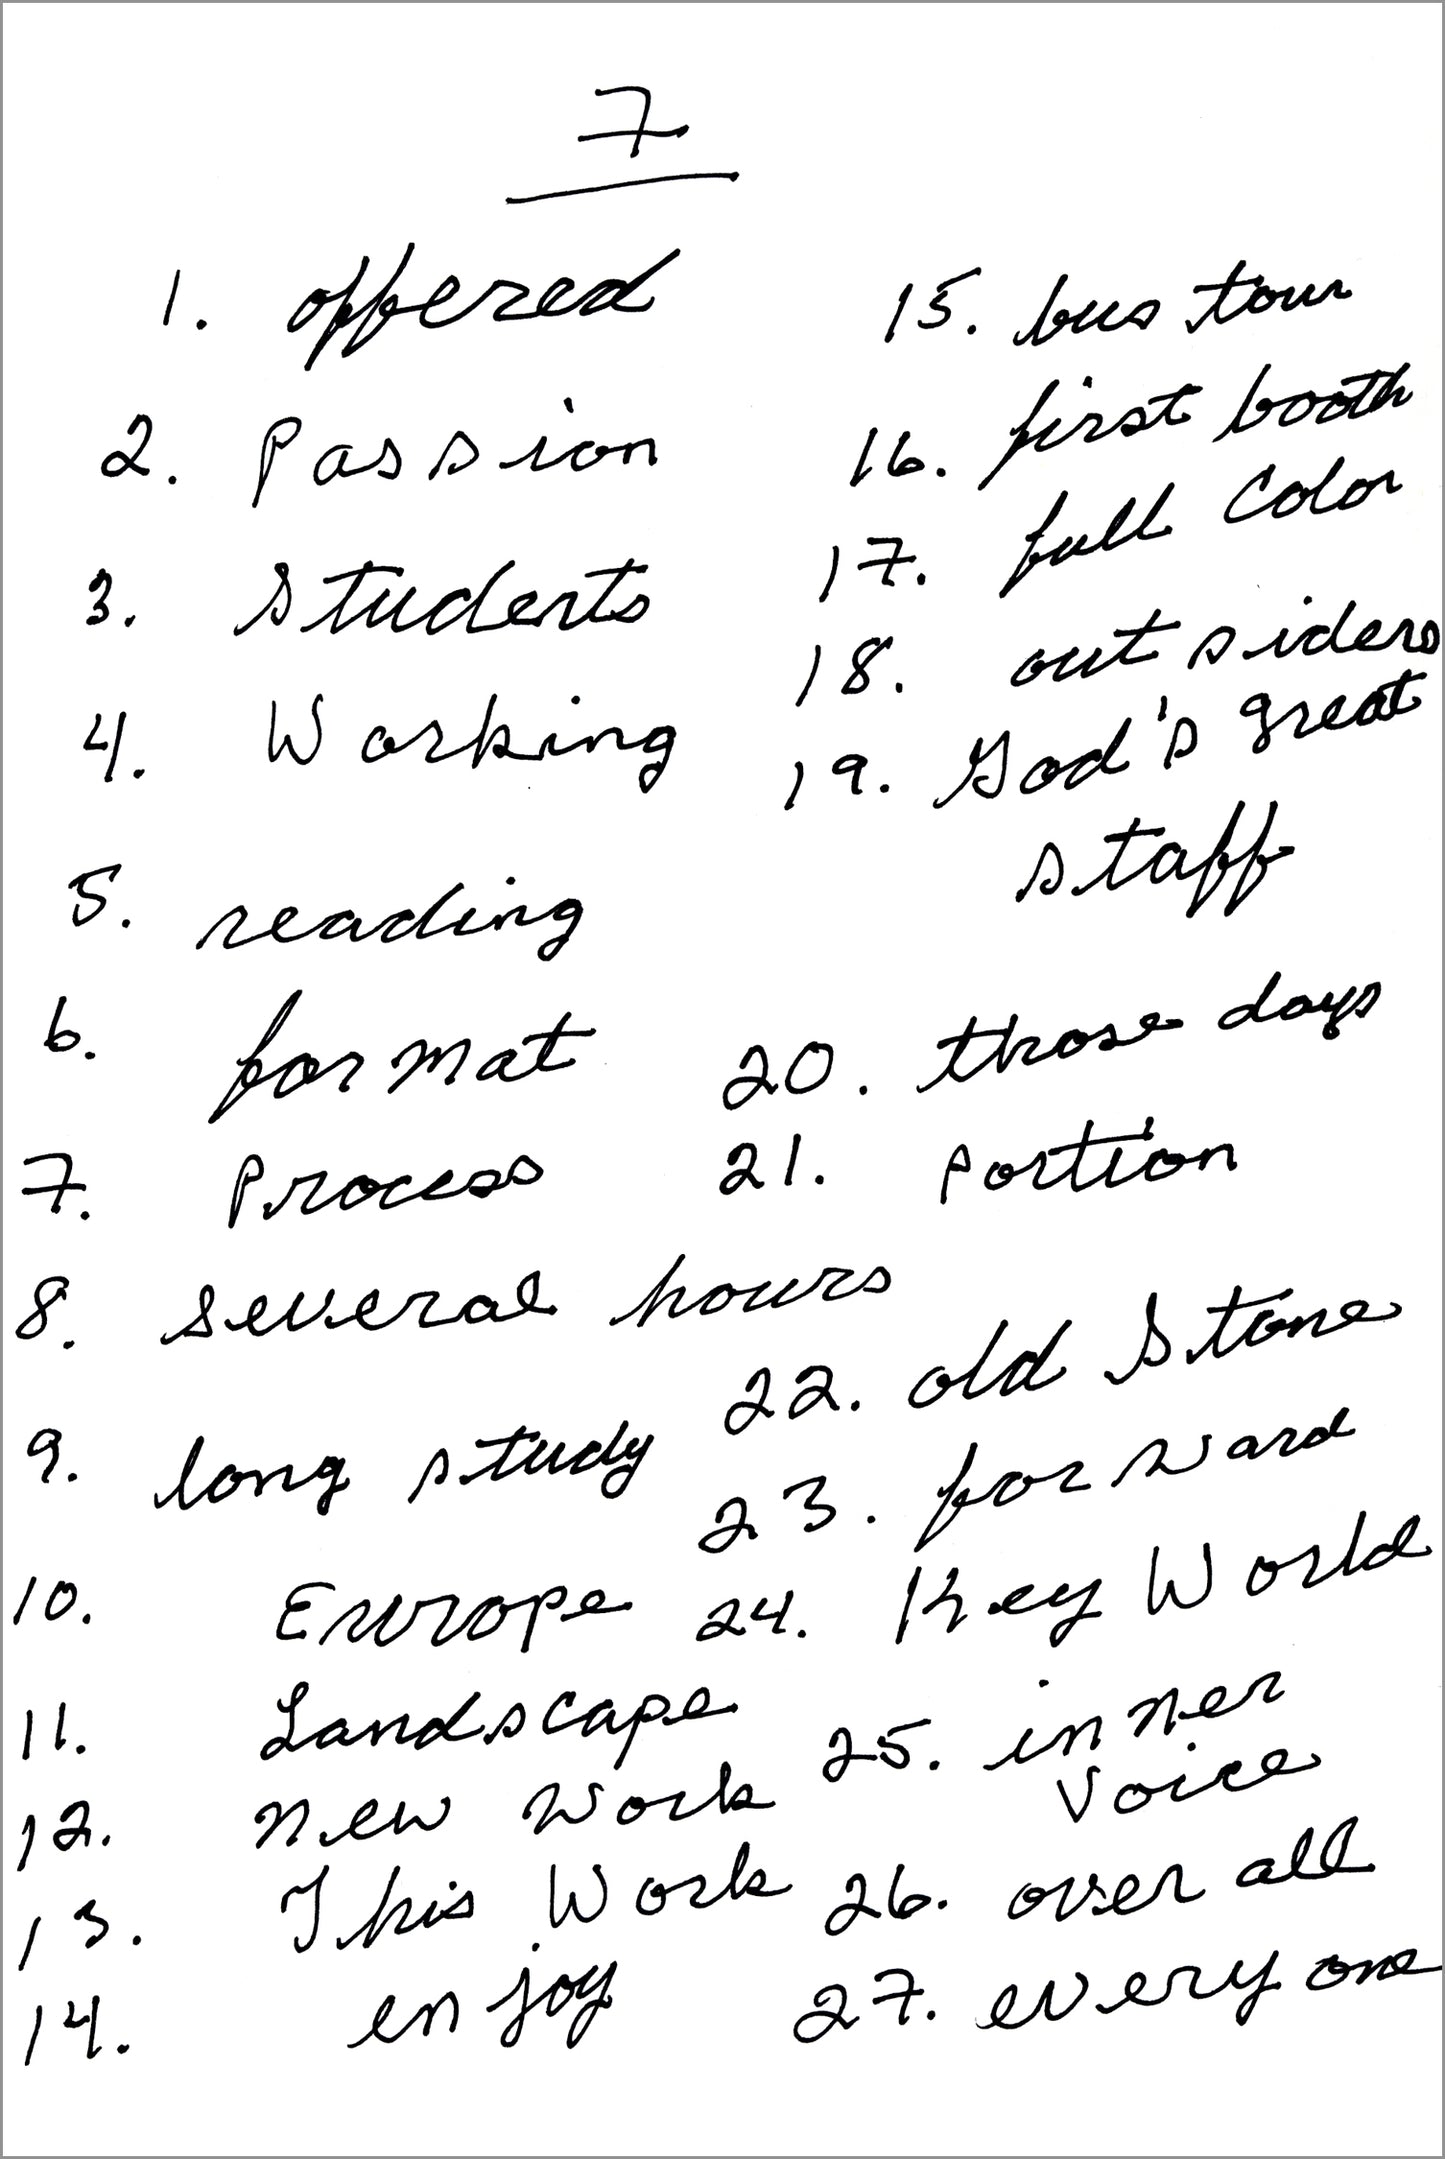 7
1. offered
2. Passion
3. Students
4. Working
5. reading
6. format
7. Process
8. several hours
9. long study
10. Europe
11. Landscape
12. New Work
13. This Work
14. enjoy
15. bus tour
16. first booth
17. full Color
18. out siders
19. God's great
staff
20. those days
21. portion
22. old Stone
23. forward
24. Key World
25. inner
Voice
26. over all
27. every one